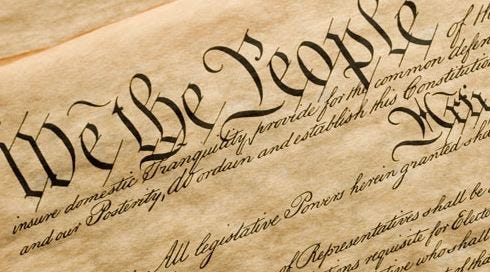 We the People of the
insure domestic Tranquility, provide for the common defen
and our Posterity, do ordain and establish this Constitution
Artic
All legislative Powers herein granted sha
of Representatives shall be
ions requisite for Elect
who shall
of that